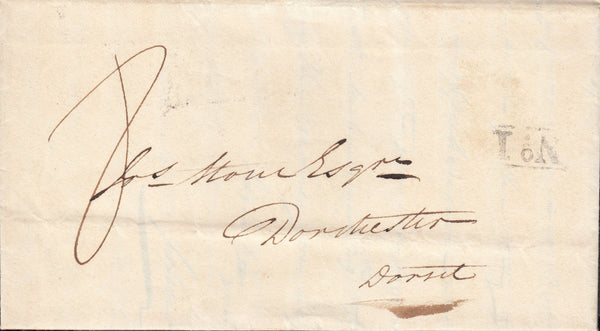 8
Jos Stone Esqre
Dorchester
Dorset
No 1